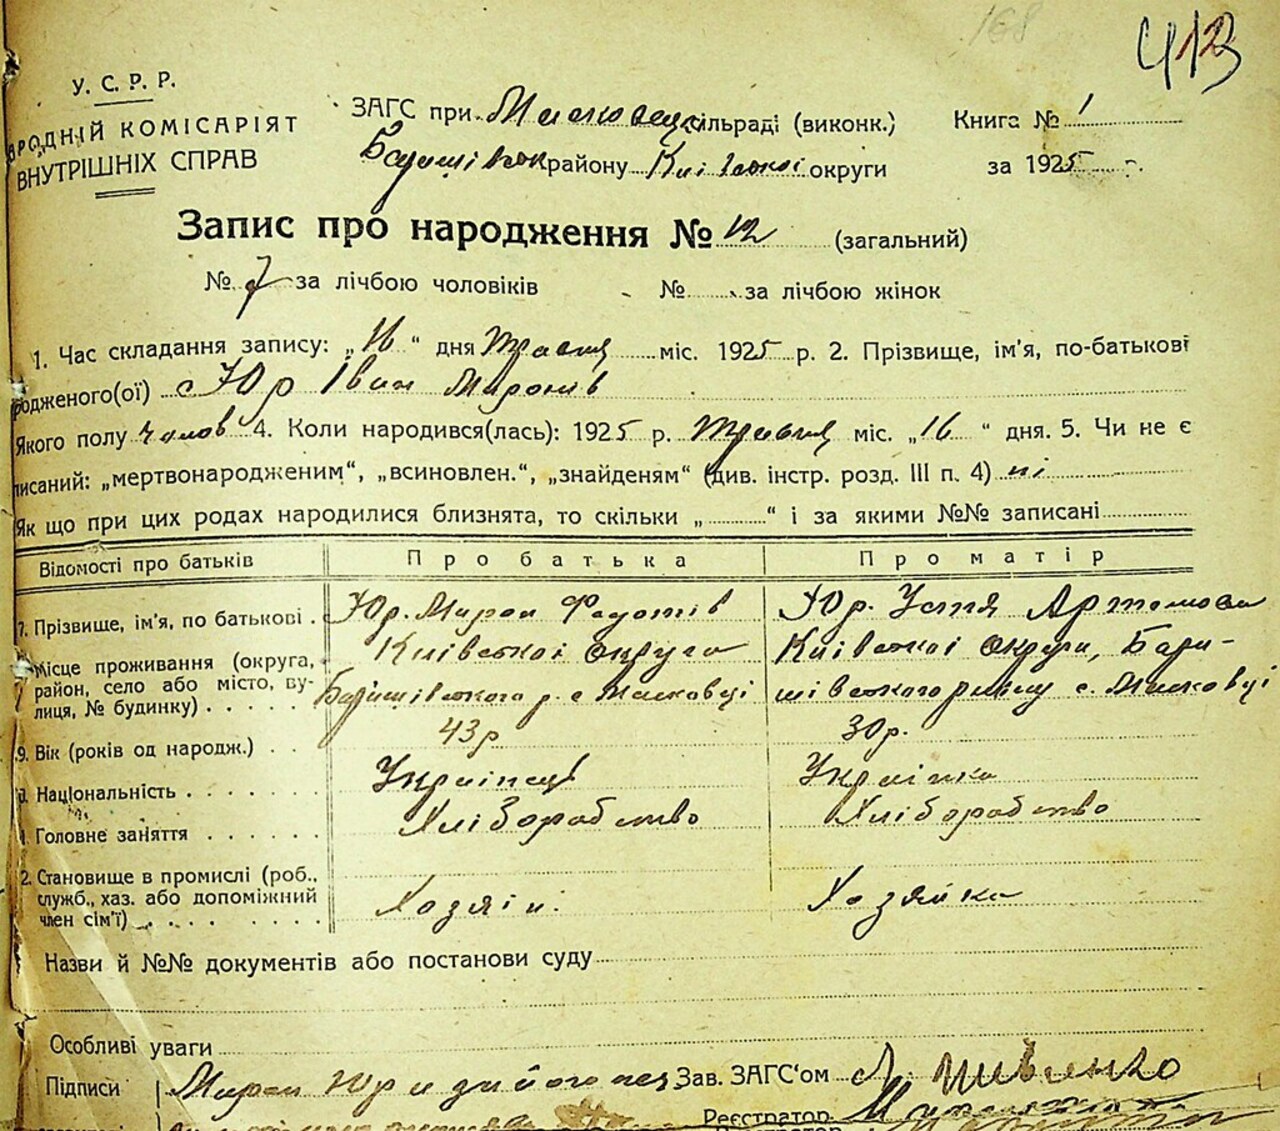 168
413
У. С. Р. Р.
РОДНІЙ КОМІСАРІЯТ
ВНУТРІШНІХ СПРАВ
ЗАГС при сільраді (виконк.) Книга № 1
району Київської округи за 1925 г.
Запис про народження № 12 (загальний)
№ 7 за лічбою чоловіків № за лічбою жінок
1. Час складання запису: „16“ дня Травня міс. 1925 р. 2. Прізвище, ім'я, по-батькові
одженого(ої) Юр Іван Миронів
Якого полу чолов 4. Коли народився(лась): 1925 р. Травня міс. „16“ дня. 5. Чи не є
писаний: „мертвонародженим“, „всиновлен.“, „знайденям“ (див. інстр. розд. III п. 4) ні
Як що при цих родах народилися близнята, то скільки „ “ і за якими №№ записані
Відомості про батьків Про батька Про матір
7. Прізвище, ім'я, по батькові . Юр. Мирон Федотів Юр. Устя Артемова
Місце проживання (округа, Київської округи Київської округи, Бари-
район, село або місто, ву- Баришівського р. с Масковці шівського району с. Масковці
лиця, № будинку) . . . . .
9. Вік (років од народж.) . . 43 р 30 р.
Національність . . . . . . . Українець Українка
Головне заняття . . . . . . Хліборобство Хліборобство
2. Становище в промислі (роб.,
служб., хаз. або допоміжний Хозяїн. Хозяйка
член сім'ї) . . . . . . .
Назви й №№ документів або постанови суду
Особливі уваги
Підписи Мирон Юр а за його Зав. ЗАГС'ом
Реєстратор